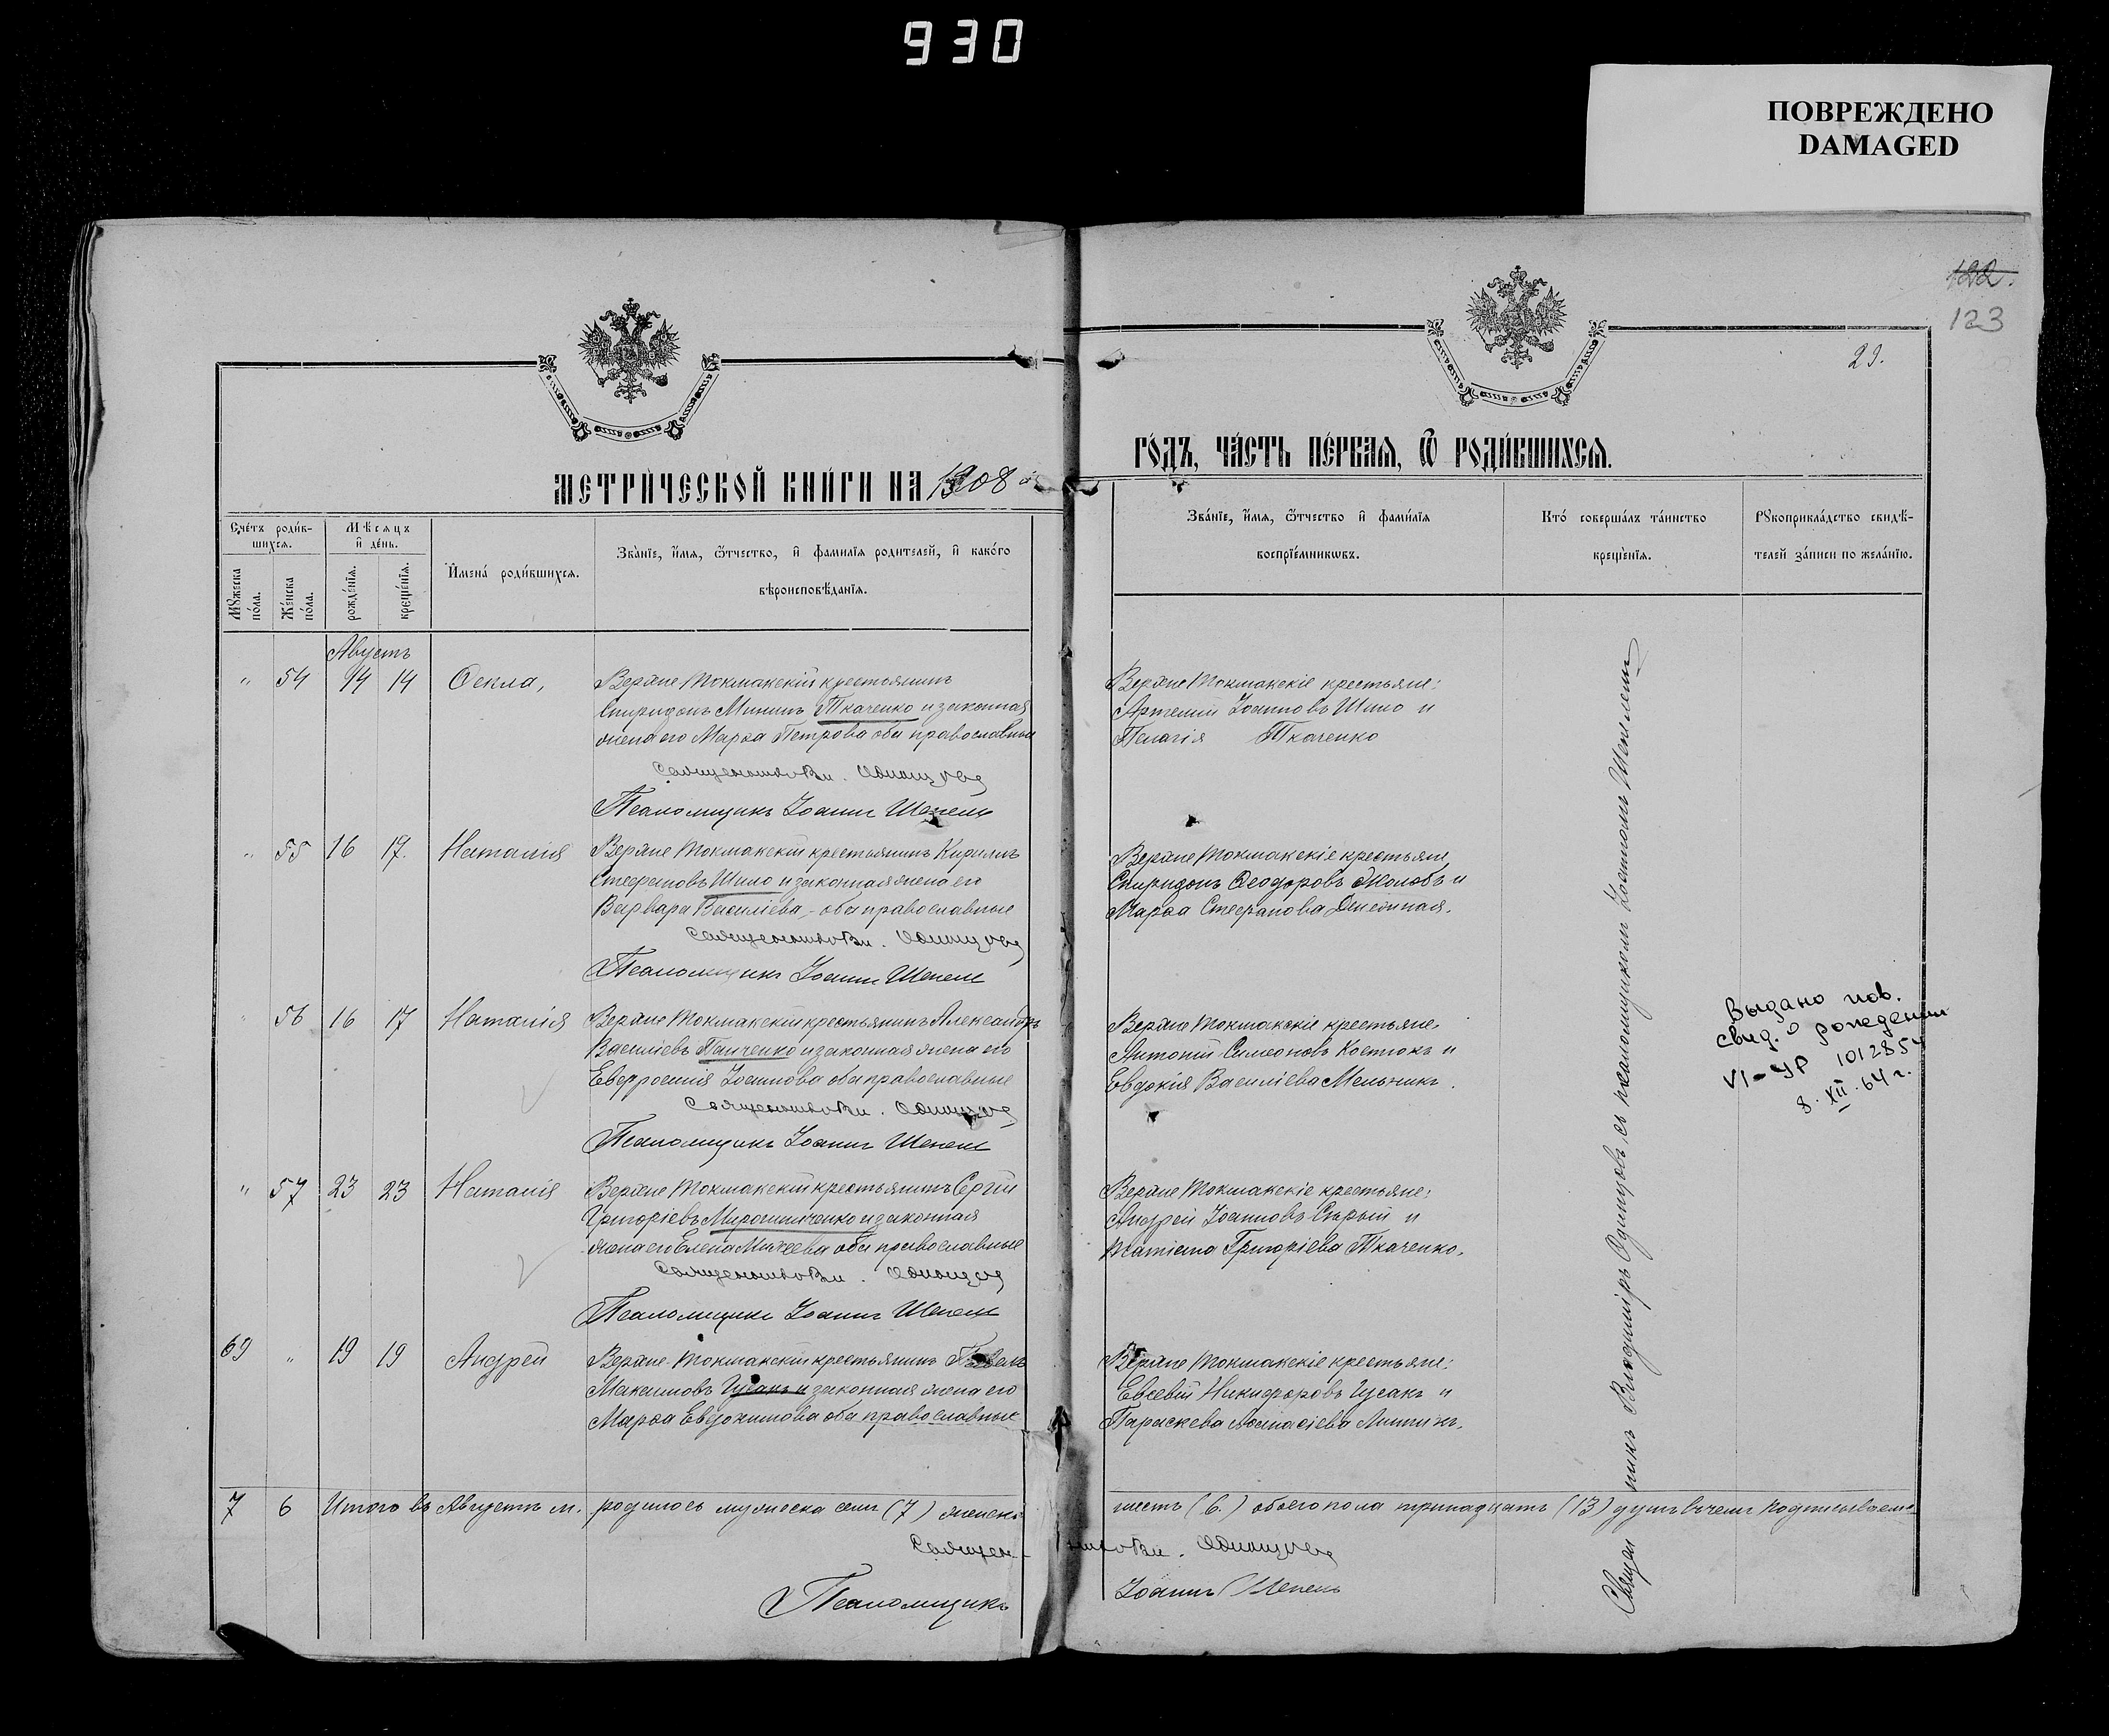 930
ПОВРЕЖДЕНО
DAMAGED
122.
123
29.
МЕТРИЧЕСКОЙ КНИГИ НА 1908 й
ГОДЪ, ЧАСТЬ ПЕРВАЯ, Ѿ РОДИВШИХСЯ.
Счетъ родив-
шихся.
Мужеска
пола.
Женска
пола.
Мѣсяцъ
и день.
рожденія.
крещенія.
Имена родившихся.
Званіе, имя, ѿтчество, и фамилія родителей, и какого
вѣроисповѣданія.
Званіе, имя, ѿтчество и фамилія
воспріемниковъ.
Кто совершалъ таинство
крещенія.
Рукоприкладство свидѣ-
телей записи по желанію.
Августъ
" 54 14 14 Ѳекла,
Верхне Токмакскій крестьянинъ
Спиридонъ Мининъ Ткаченко и законная
жена его Марѳа Петрова оба православные
Священникъ Вл. Одинцовъ
Псаломщикъ Іоаннъ Шепель
Верхне Токмакскіе крестьяне:
Артемій Іоанновъ Шило и
Пелагія Ткаченко
" 55 16 17. Наталія
Верхне Токмакскій крестьянинъ Кириллъ
Стефановъ Шило и законная жена его
Варвара Василіева, оба православные
Священникъ Вл. Одинцовъ
Псаломщикъ Іоаннъ Шепель
Верхне Токмакскіе крестьяне
Спиридонъ Ѳеодоровъ Жолобъ и
Марѳа Стефанова
" 56 16 17 Наталія
Верхне Токмакскій крестьянинъ Александръ
Василіевъ Панченко и законная жена его
Евфросинія Іоаннова оба православные
Священникъ Вл. Одинцовъ
Псаломщикъ Іоаннъ Шепель
Верхне Токмакскіе крестьяне,
Антоній Симеоновъ Костюкъ и
Евдокія Василіева Мельникъ.
Выдано пов.
свид. о рождении
VI-УР 1012854
8. XII. 64 г.
" 57 23 23 Наталія
Верхне Токмакскій крестьянинъ Сергій
Григоріевъ Мирошниченко и законная
жена его Елена Михеева оба православные
Священникъ Вл. Одинцовъ
Псаломщикъ Іоаннъ Шепель
Верхне Токмакскіе крестьяне:
Андрей Іоанновъ Старый и
Татіана Григоріева Ткаченко.
69 " 19 19 Андрей
Верхне-Токмакскій крестьянинъ Павелъ
Максимовъ Гусакъ и законная жена его
Марѳа Евдокимова оба православные
Верхне Токмакскіе крестьяне:
Евсевій Никифоровъ Гусакъ и
Параскева Аѳанасіева
Священникъ Владиміръ Одинцовъ съ псаломщикомъ Іоанномъ Шепелемъ
7 6 Итого въ Августѣ м. родилось мужеска семь (7) женска шесть (6.) обоего пола тринадцать (13) душъ въ чемъ подписываемся
Священникъ Вл. Одинцовъ
Псаломщикъ Іоаннъ Шепель